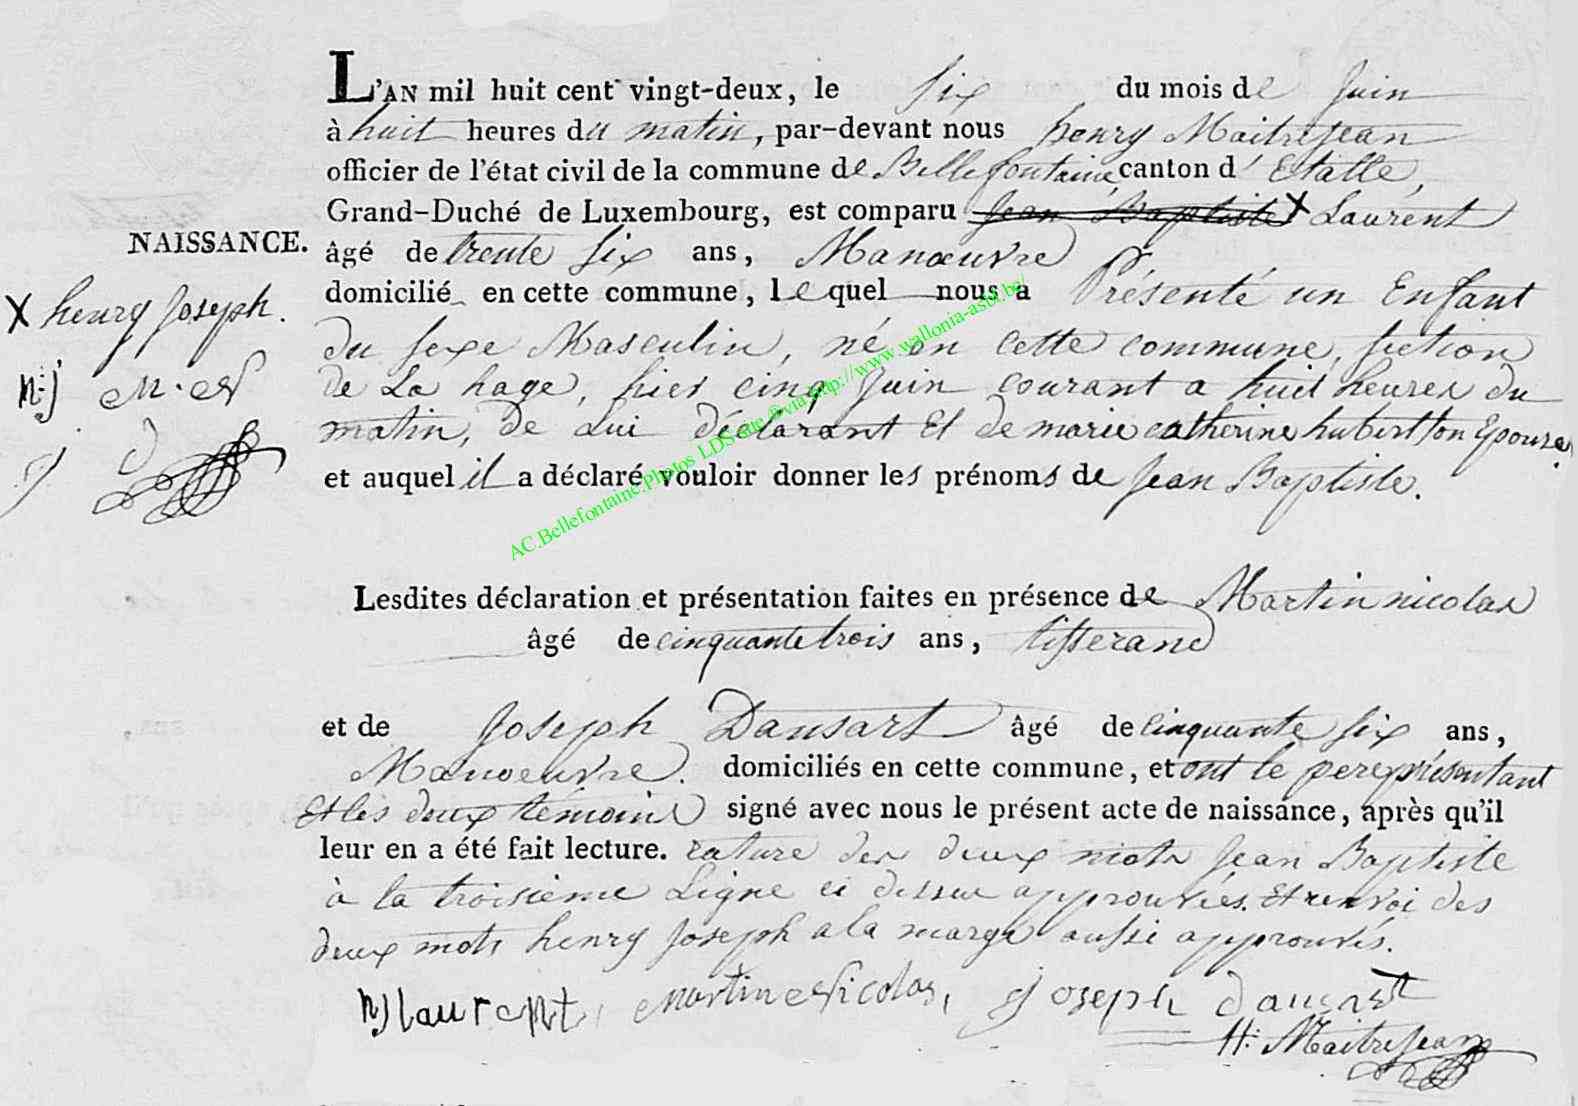 L'AN mil huit cent vingt-deux, le six du mois de Juin
à huit heures du matin, par-devant nous henry Maitrejean
officier de l'état civil de la commune de Bellefontaine, canton d' Etalle,
Grand-Duché de Luxembourg, est comparu Jean Baptiste X Laurent
NAISSANCE.
âgé de trente six ans, Manœuvre
domicilié en cette commune, lequel nous a Présenté un Enfant
X henry Joseph.
du sexe Masculin, né en cette commune, section
n:j M. N
de La hage, hier cinq Juin courant a huit heures du
matin, de Lui déclarant Et de marie catherine hubert son Epouse,
J d
et auquel il a déclaré vouloir donner les prénoms de Jean Baptiste.
AC.Bellefontaine.Photos LDS via http://www.wallonia-asbl.be/
Lesdites déclaration et présentation faites en présence de Martin nicolas
âgé de cinquante trois ans, tisserand
et de Joseph Dansart âgé de cinquante six ans,
Manoeuvre. domiciliés en cette commune, et ont le pere présentant
Et les deux témoins signé avec nous le présent acte de naissance, après qu'il
leur en a été fait lecture. rature des deux mots Jean Baptiste
à la troisième Ligne ci dessus approuvées. Et renvoi des
deux mots henry Joseph a la marge aussi approuvés.
hj laurent, Martin Nicolas, Joseph dansart
H: Maitrejean